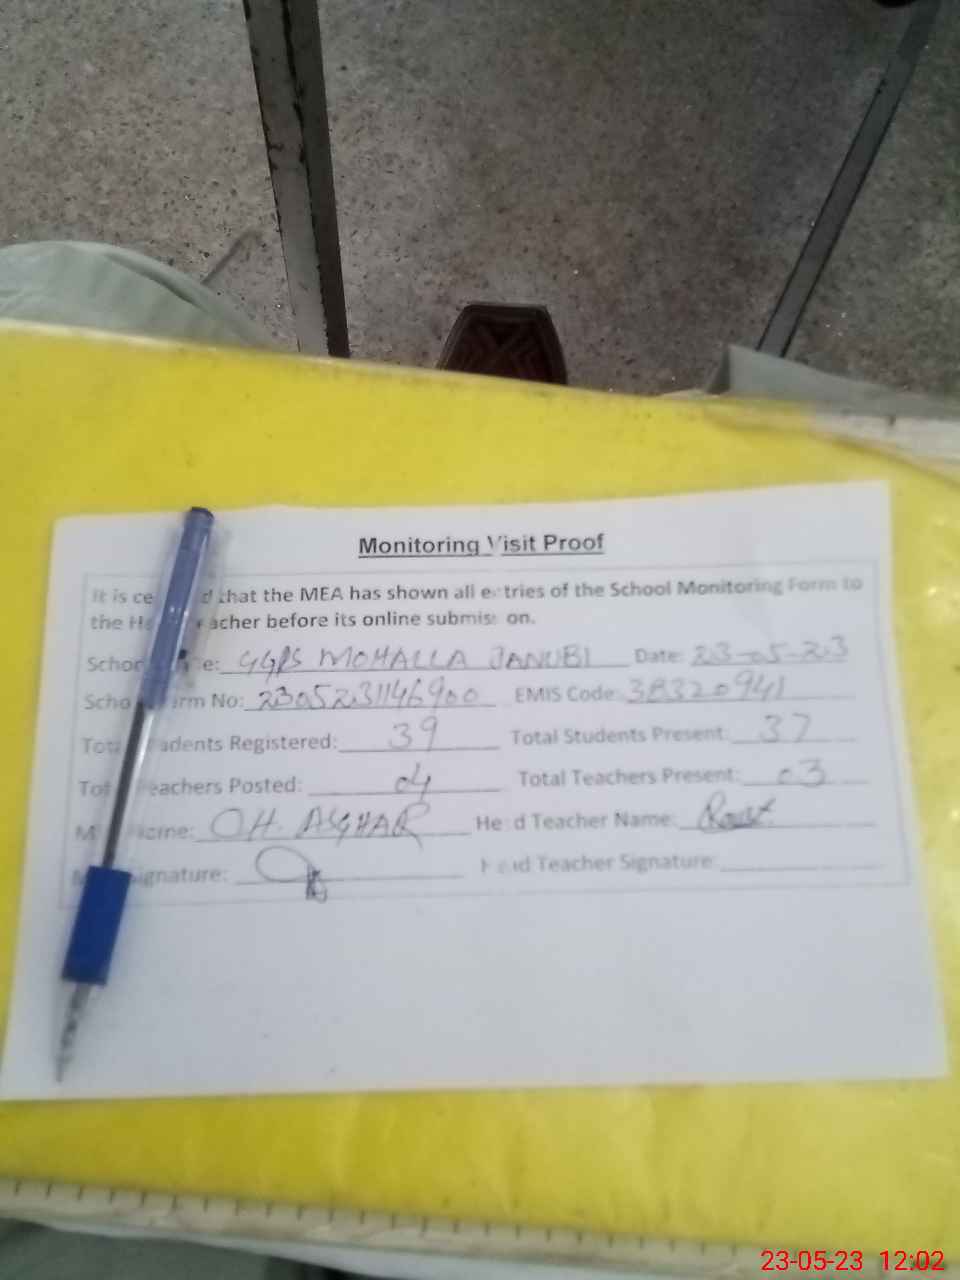 Monitoring Visit Proof
It is that the MEA has shown all entries of the School Monitoring Form to
the before its online submission.
GGPS MOHALLA JANUBI Date: 23-05-23
No: 2305231146900 EMIS Code: 38320941
Registered: 39 Total Students Present: 37
Posted: 04 Total Teachers Present: 03
CH. ASGHAR Head Teacher Name:
Signature: Head Teacher Signature:
23-05-23 12:02